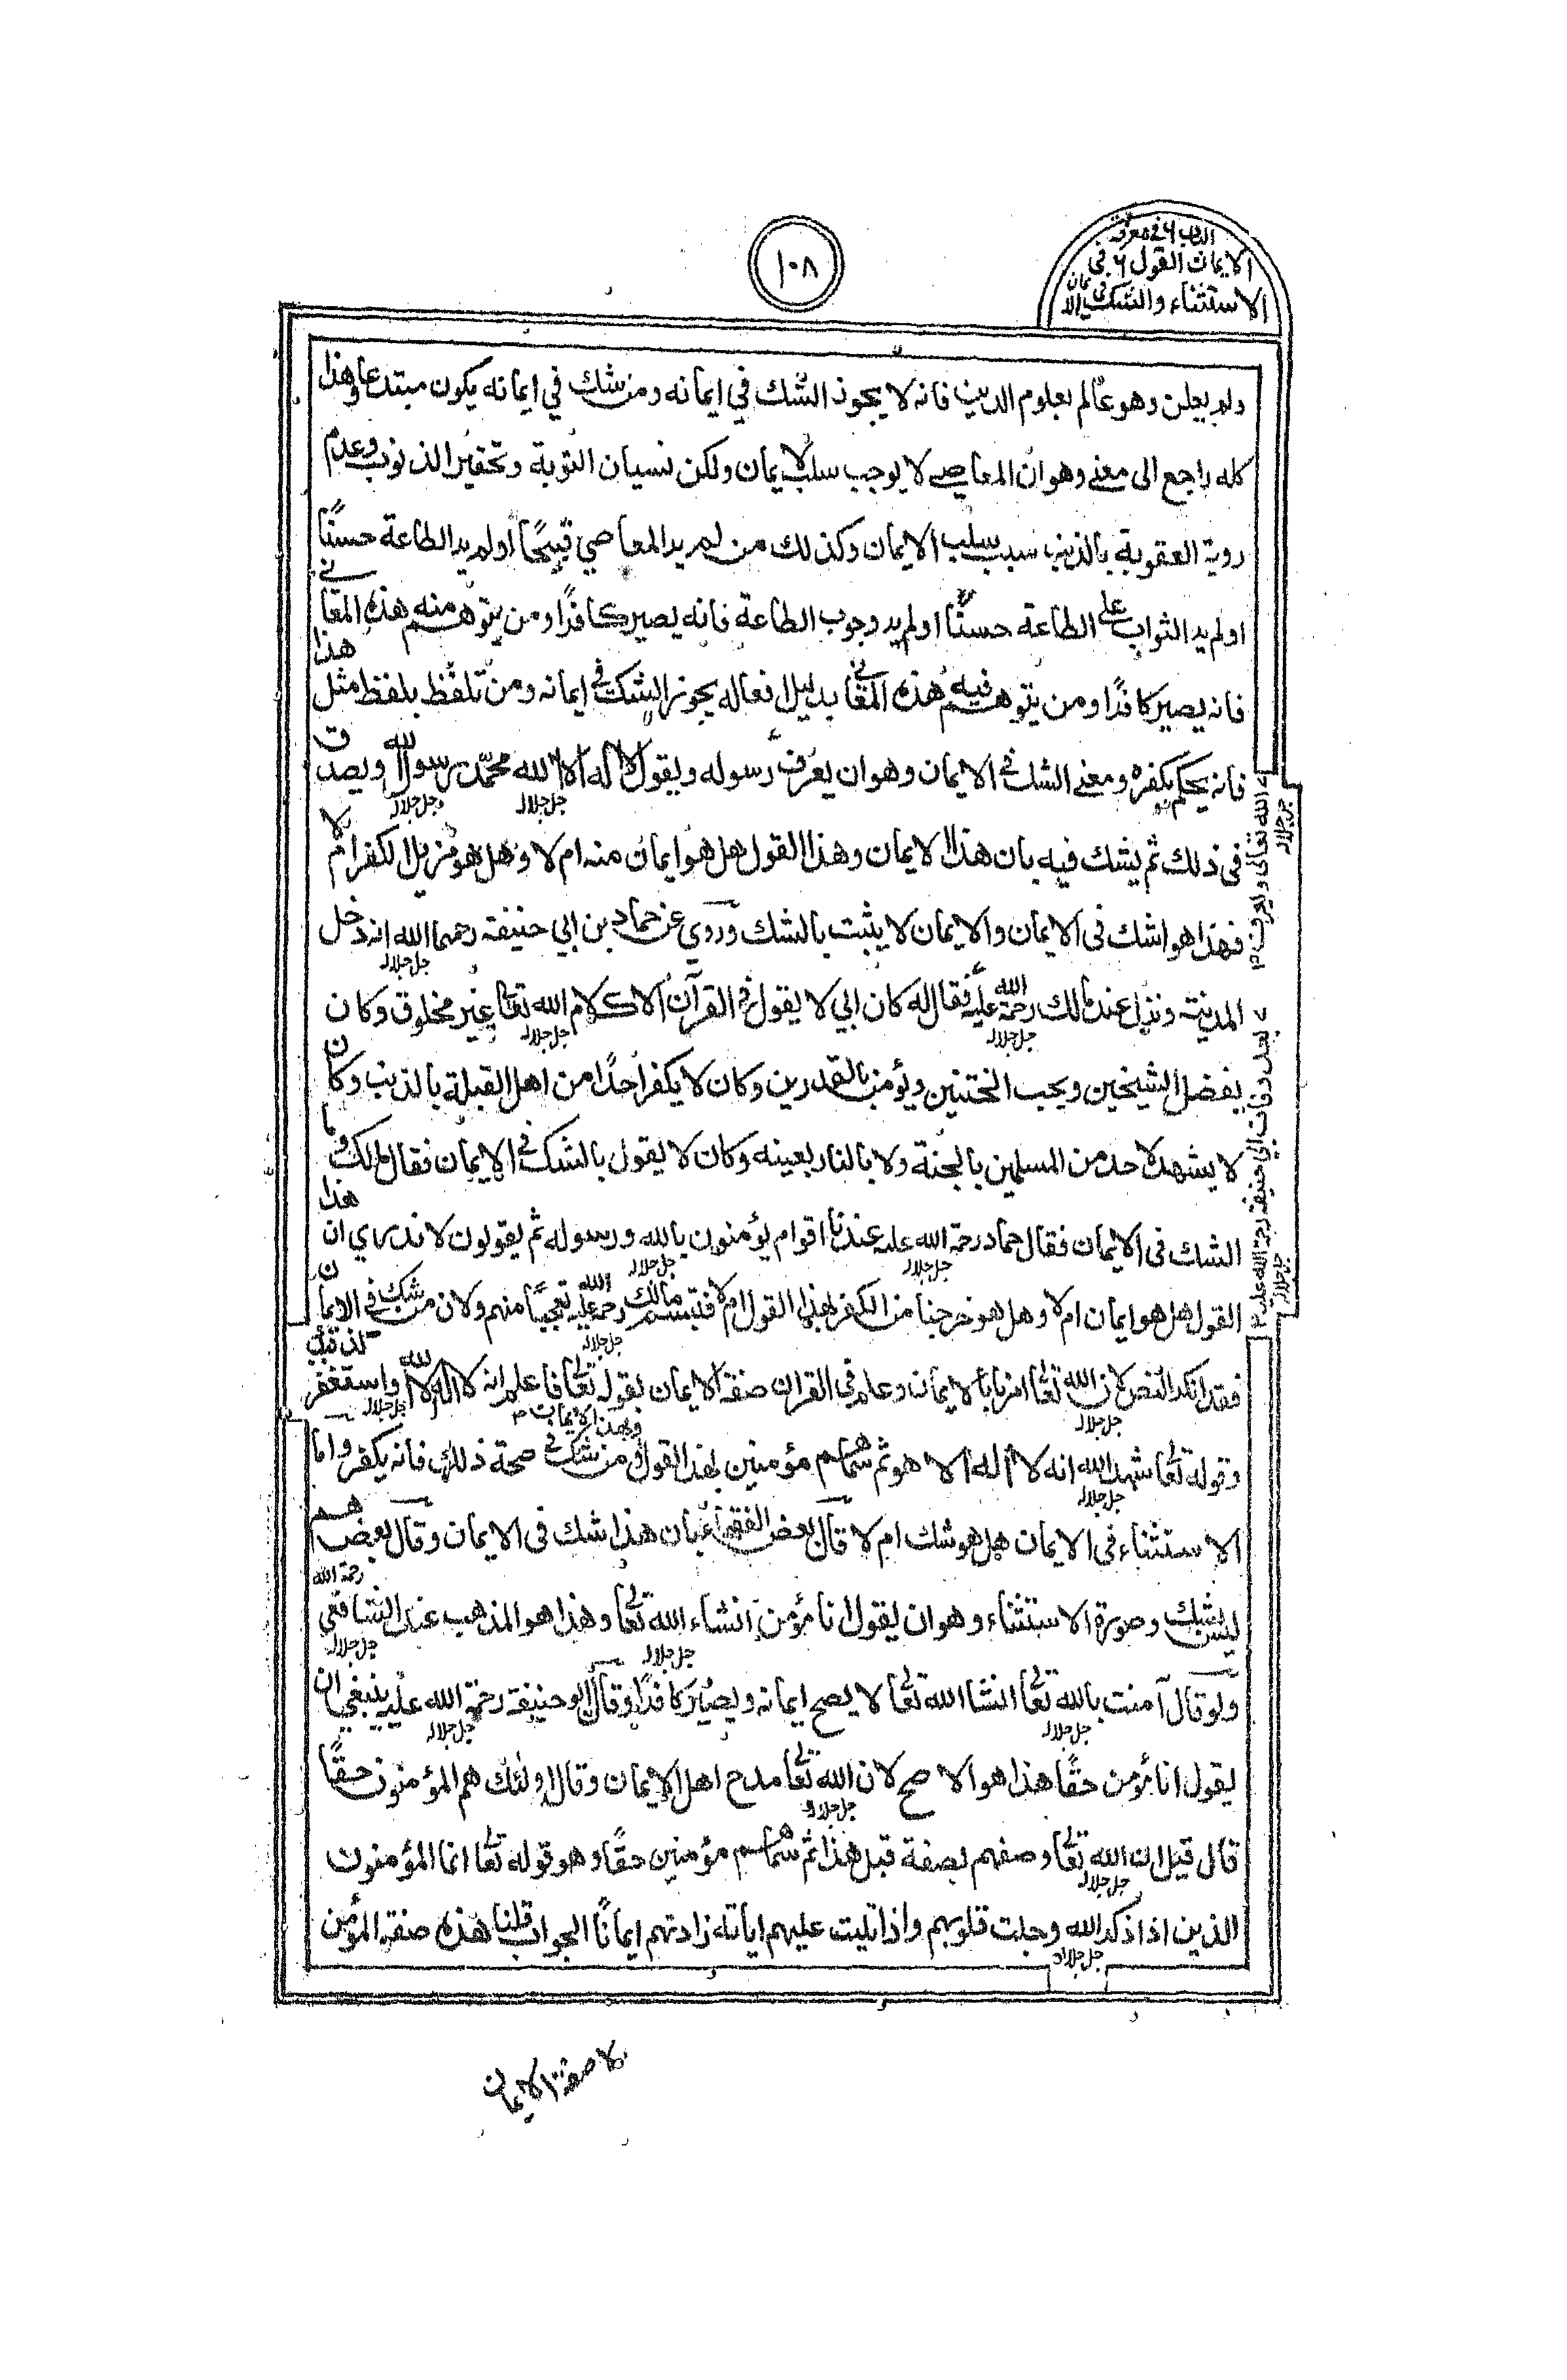 الباب ٦ في معرفة
الايمان القول ٦ في
الاستثناء والشك في الايمان
١٠٨
ولم يعلن وهو عالم بعلوم الدين فانه لا يجوز الشك في ايمانه ومن شك في ايمانه يكون مبتدعا وهذا
كله راجع الى معنى وهو ان المعاصي لا يوجب سلب الايمان ولكن نسيان التوبة وتحقير الذنوب وعدم
روية العقوبة بالذنب سبب سلب الايمان وكذلك من لم ير المعاصي قبيحًا او لم ير الطاعة حسنًا
او لم ير الثواب على الطاعة حسنًا او لم ير وجوب الطاعة فانه يصير كافرًا ومن يتوهم منه هذه المعاني
فانه يصير كافرًا ومن يتوهم فيه هذه المعاني بدليل افعاله يجوز الشك في ايمانه ومن تلفظ بلفظ مثل هذا
فانه يحكم بكفره ومعنى الشك في الايمان وهو ان يعرف رسوله ويقول لا اله الا الله محمد رسول الله ويصدق
جل جلاله جل جلاله
في ذلك ثم يشك فيه بان هذا الايمان وهذا القول هل هو ايمان منه ام لا وهل هو مزيل الكفر ام لا
فهذا هو شك في الايمان والايمان لا يثبت بالشك وروي عن حماد بن ابي حنيفة رحمهما الله انه دخل
جل جلاله
المدينة ونزل عند مالك رحمة الله عليه فقال له كان ابي لا يقول في القرآن الا كلام الله تعالى غير مخلوق وكان
جل جلاله جل جلاله
يفضل الشيخين ويحب الختنين ويؤمن بالقدرين وكان لا يكفر احدًا من اهل القبلة بالذنب وكان
لا يشهد لاحد من المسلمين بالجنة ولا بالنار بعينه وكان لا يقول بالشك في الايمان فقال مالك وما
الشك في الايمان فقال حماد رحمة الله عليه عندنا اقوام يؤمنون بالله ورسوله ثم يقولون لا ندري ان هذا
جل جلاله جل جلاله
القول هل هو ايمان ام لا وهل هو خرجنا من الكفر بهذا القول ام لا فتبسم مالك رحمة الله عليه تعجبًا منهم ولان من شك في الايمان
جل جلاله
فقد انكر النص لان الله تعالى امرنا بالايمان وعلم في القران صفة الايمان بقوله تعالى فاعلم انه لا اله الا الله واستغفر لذنبك
جل جلاله جل جلاله
وقوله تعالى شهد الله انه لا اله الا هو ثم سماهم مؤمنين بهذا القول وبهذا الايمان ومن شك في صحة ذلك فانه يكفر واما
جل جلاله
الاستثناء في الايمان هل هو شك ام لا قال بعض الفقهاء بان هذا شك في الايمان وقال بعضهم
ليس بشك وصورة الاستثناء وهو ان يقول انا مؤمن انشاء الله تعالى وهذا هو المذهب عند الشافعي رحمة الله
جل جلاله جل جلاله
ولو قال آمنت بالله تعالى انشا الله تعالى لا يصح ايمانه ويصير كافرًا وقال ابو حنيفة رحمة الله عليه ينبغي ان
جل جلاله جل جلاله
يقول انا مؤمن حقًا هذا هو الاصح لان الله تعالى مدح اهل الايمان وقال اولئك هم المؤمنون حقًا
جل جلاله
قال قيل ان الله تعالى وصفهم بصفة قبل هذا ثم سماهم مؤمنين حقًا وهو قوله تعالى انما المؤمنون
جل جلاله
الذين اذا ذكر الله وجلت قلوبهم واذا تليت عليهم اياته زادتهم ايمانًا الجواب قلنا هذه صفة المؤمن
جل جلاله
الله تعالى ويعرف
جل جلاله
بعد وفات ابي حنيفة رحمة الله عليه
جل جلاله
لا صفة الايمان